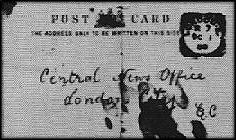 POST CARD
THE ADDRESS ONLY TO BE WRITTEN ON THIS SIDE
Central News Office
London City
E.C